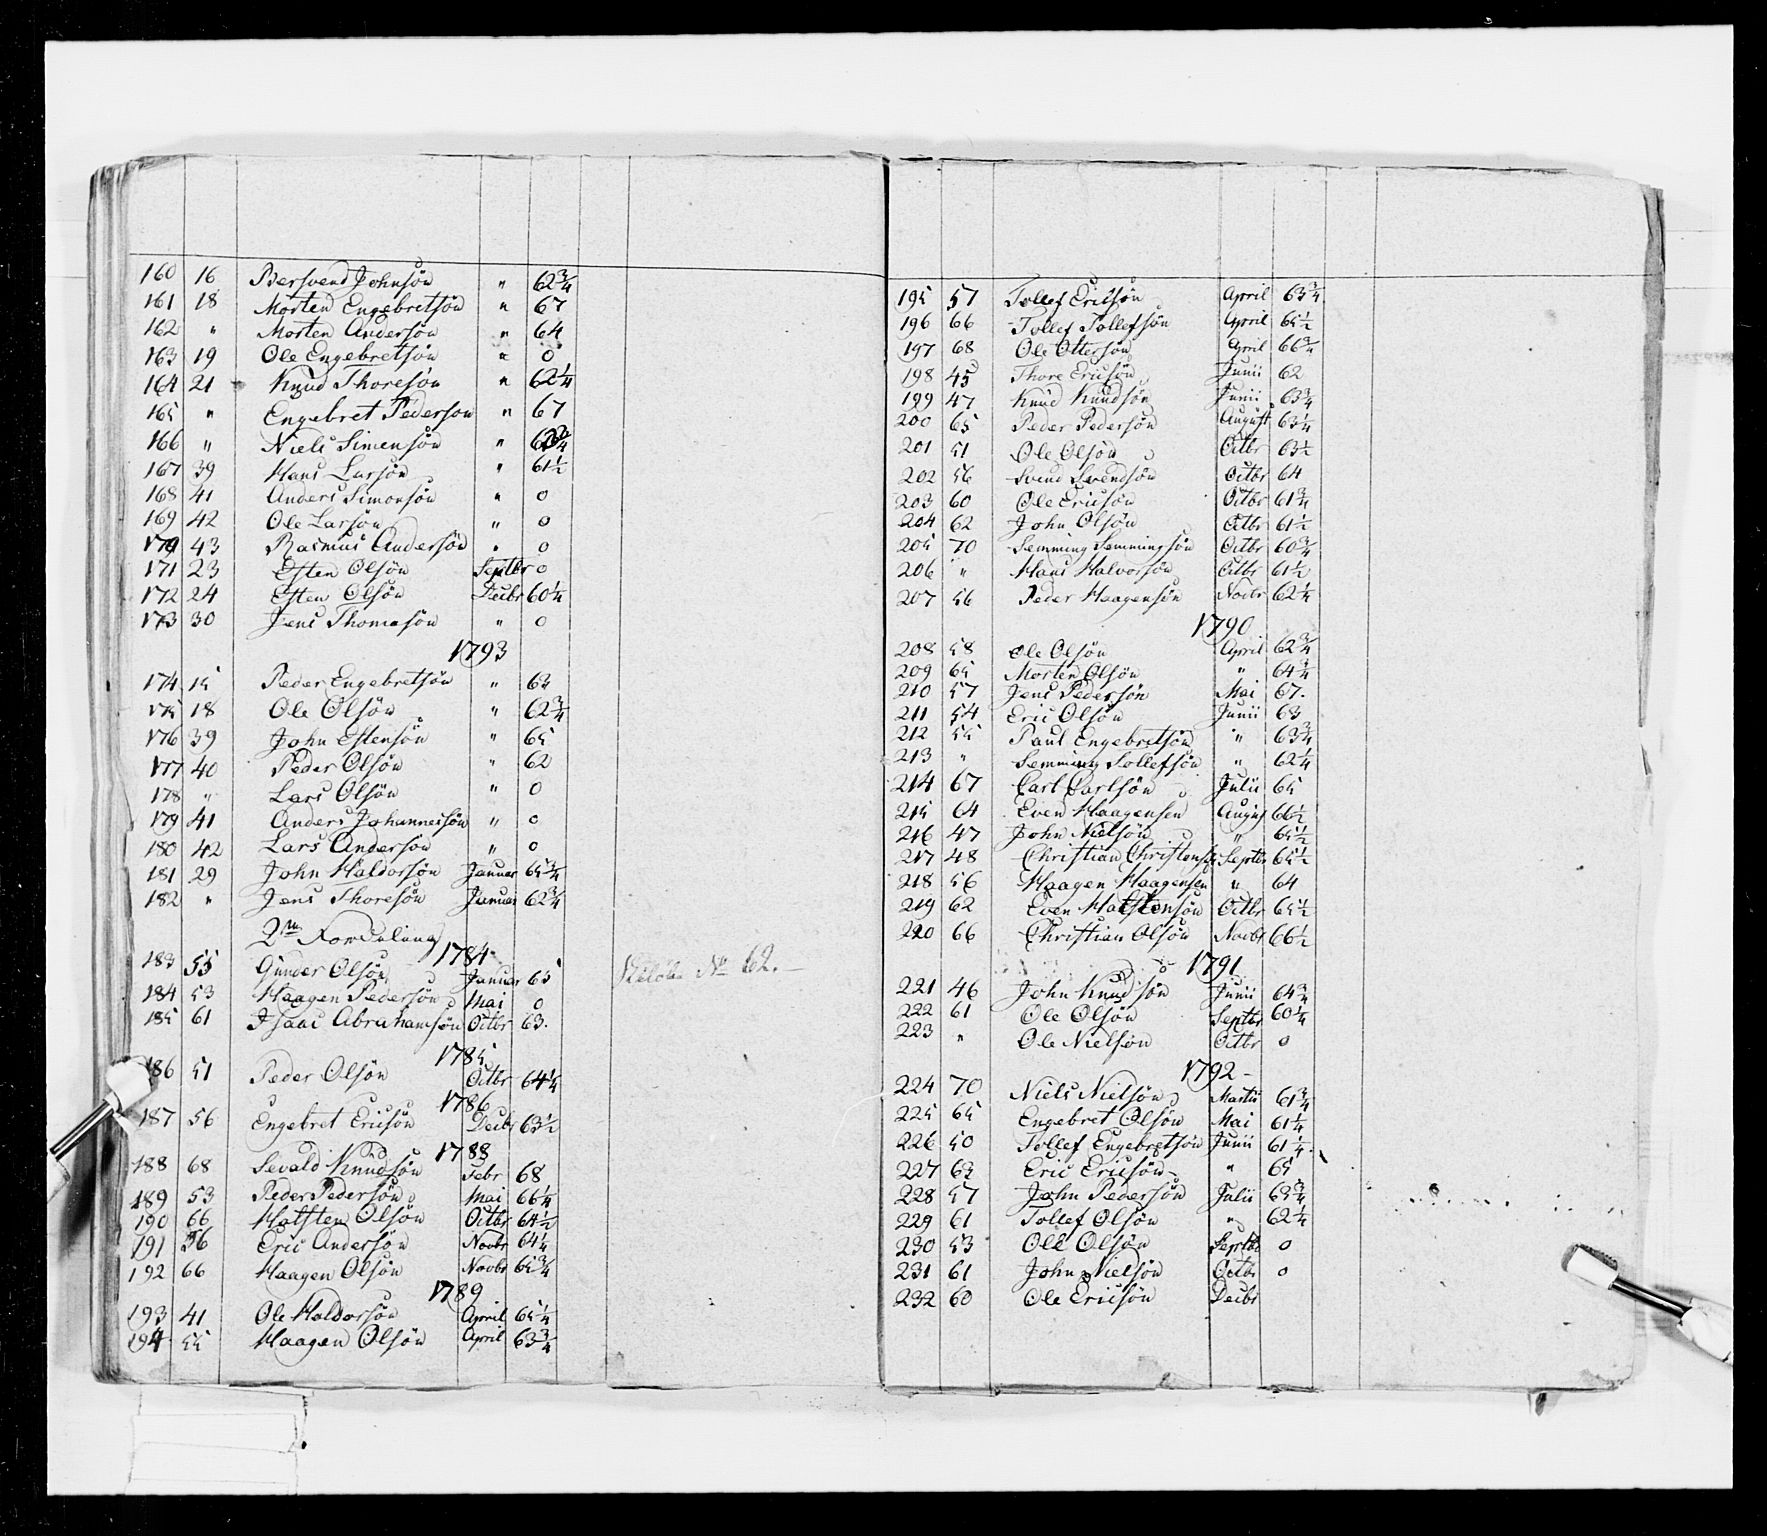 160 16 Bersvend Johnsön " 62¾
161 18 Morten Engebretsön " 67
162 " Morten Andersön " 64
163 19 Ole Engebretsön " 0
164 21 Knud Thoresön " 62¼
165 " Engebret Pederson " 67
166 " Niels Simensön "
167 39 Hans Larsön " 61½
168 41 Anders Simonsön " 0
169 42 Ole Larsön " 0
170 43 Rasmus Andersön " 0
171 23 Esten Olsön Septbr 0
172 24 Esten Olsön Decbr 60¼
173 30 Jens Thomasön " 0
1793
174 15 Peder Engebretsön " 63
175 18 Ole Olsön " 62¾
176 39 John Estensön " 65
177 40 Peder Olsön " 62
178 " Lars Olsön " 0
179 41 Anders Johannessön " 0
180 42 Lars Andersön " 0
181 29 John Haldorsön Januar 65¾
182 " Jens Thoresön Januar 62¾
2den Fordeling
1784
183 55 Gunder Olsön Januar 65 No 62.
184 53 Haagen Pedersön Mai 0
185 61 Isaac Abrahamsön Octbr 63.
1785
186 51 Peder Olsön Octbr 64¼
1786
187 56 Engebret Ericsön Decbr 63½
1788
188 68 Sevald Knudsön Febr 68
189 53 Peder Pedersön Mai 66¼
190 66 Halsten Olsön Octbr 64½
191 56 Eric Andersön Novbr 64¼
192 66 Haagen Olsön Novbr 65¾
1789
193 41 Ole Haldorsön April 65¼
194 55 Haagen Olsön April 63¾
195 57 Tollef Ericsön April 63¾
196 66 Tollef Tollefsön April 65½
197 68 Ole Ottersön April 66¾
198 45 Thore Ericsön Junii 62
199 47 Knud Knudsön Junii 63¾
200 65 Peder Pedersön August 63¼
201 51 Ole Olsön Octbr 63½
202 56 Svend Svendsön Octbr 64
203 60 Ole Ericsön Octbr 61¾
204 62 John Olsön Octbr 61½
205 70 Semming Semmingsön Octbr 60¾
206 " Hans Halvorsön Octbr 61½
207 56 Peder Haagensön Novbr 62¼
1790
208 58 Ole Olsön April 62¾
209 65 Morten Olsön " 64¾
210 57 Jens Pedersön Mai 67.
211 54 Eric Olsön Junii 63
212 55 Paul Engebretsön " 63¾
213 " Semming Tollefsön " 62¼
214 67 Carl Carlsön Julii 65
215 64 Even Haagensen August 66½
216 47 John Nielsön " 65½
217 48 Christian Christensen Septbr 65½
218 56 Haagen Haagensen " 64
219 62 Even Halstensön Octbr 65½
220 66 Christian Olsön Novbr 66½
1791
221 46 John Knudsön Junii 64¾
222 61 Ole Olsön Septbr 60¼
223 " Ole Nielsön Octbr 0
1792
224 70 Niels Nielsön Martii 61¾
225 65 Engebret Olsön Mai 61¼
226 50 Tollef Engebretsön Junii 61¼
227 63 Eric Ericsön " 65
228 57 John Pedersön Julii 63¾
229 61 Tollef Olsön " 62¼
230 53 Ole Olsön Septbr 0
231 61 John Nielsön Octbr 0
232 60 Ole Ericsön Decbr